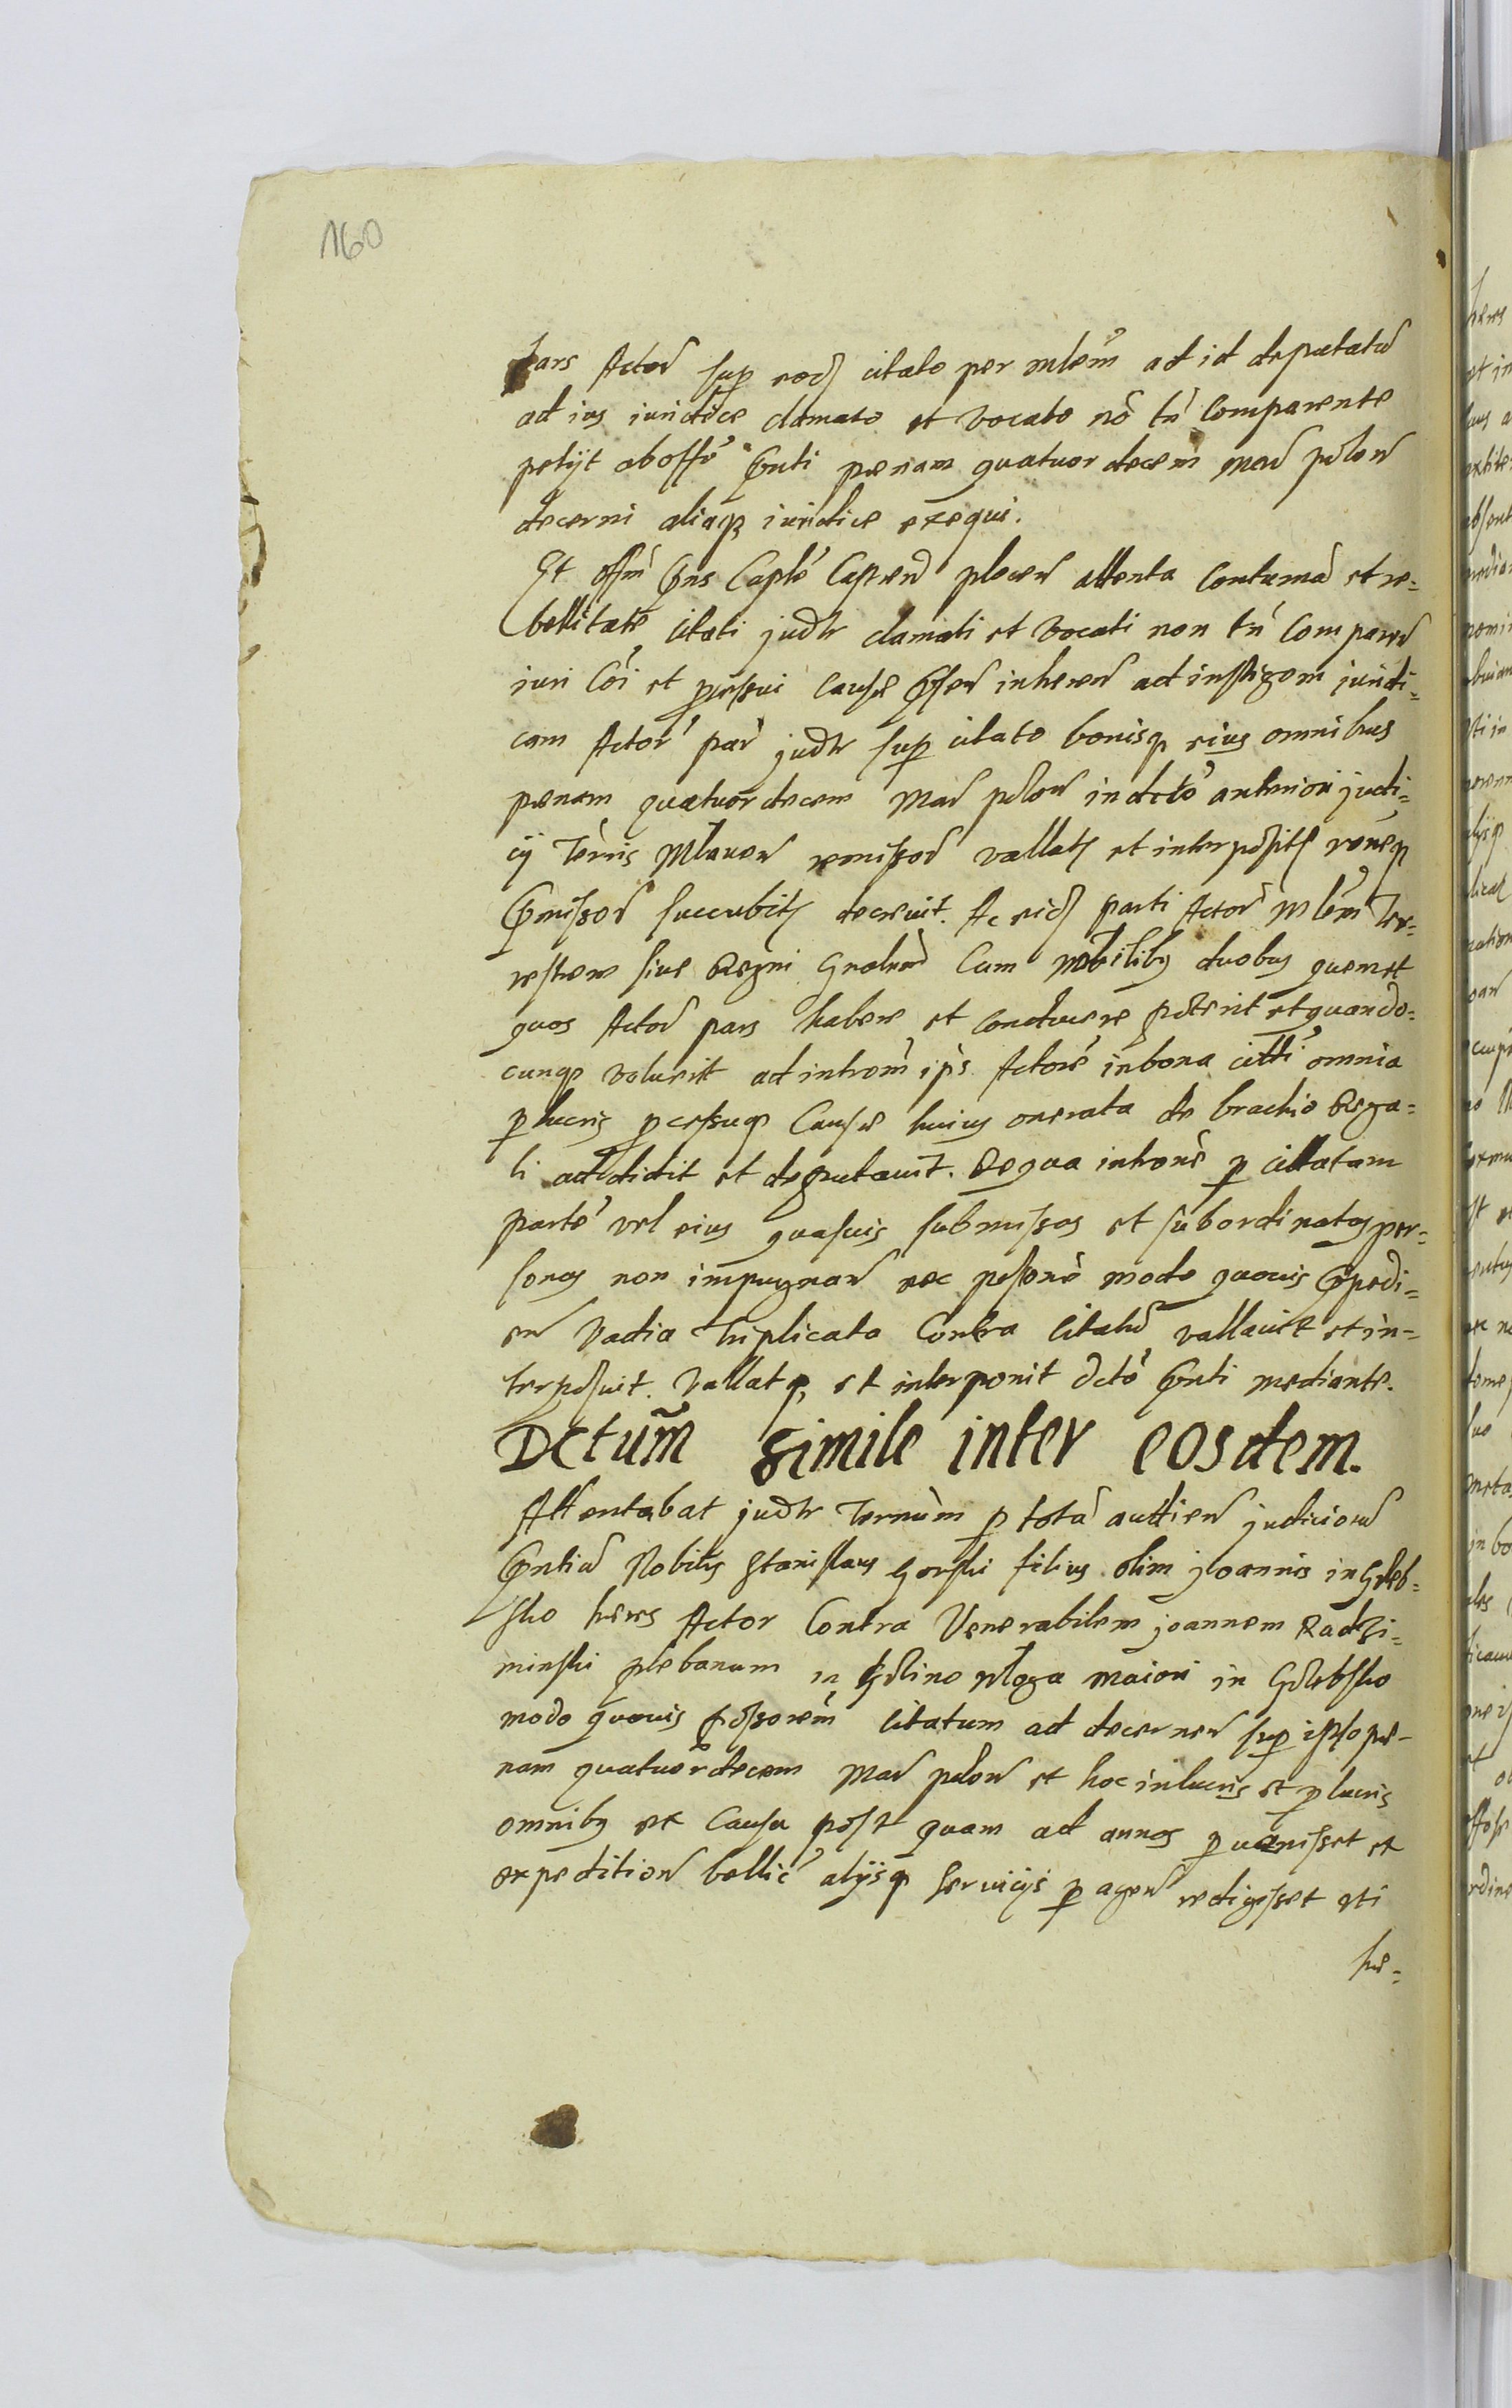 160
pars Actor sup eod citato per mlem ad id deputatu
ad ius iuridice clamato et vocato no tn Comparente
petijt ab offo pnti pœnam quatuordecem mar polon
decerni aliaq iuridice exequi.
Et offm pns Caple Castren plocen attenta Contuma et re-
bellitate Citati judtr clamati et vocati non tn Comparen
iuri Coi et processui causæ pnsen inheren ad instigaom iuridi-
cam Actor par judtr sup citato bonisq eius omnibus
pœnam quatuordecem mar polon in dcto anteriori judi-
cij Terris Mlauen remissor vallat et interposit roneq
pmissor succubit decreuit. Ac eid parti Actor Mlem Ter-
restrem siue Regni Gnalem Cum nobilibus duobus quem et
quos Actor pars habere et conducere poterit et quando-
cunq voluerit ad introm ips Actore in bona citti omnia
p lucris p cessuq Causæ huius onerata de brachio Rega-
li addidit et deputauit. De qua introne p cittatam
parte vel eius quasuis submissas et subordinatas per-
sonas non impugnan nec possone modo quouis Expedi-
en Vadia triplicata Contra citatu vallauit et in-
terposuit. Vallatq et interponit dcto pnti mediante.
Dctum simile inter eosdem.
Attentabat judtr Terminum p tota audien judicioru
pntiu Nobilis Stanislaus Gorski filius olim Joannis in Goleb-
sko hæres Actor Contra Venerabilem Joannem Radzi-
minski plebanum in Golino Mloga maiori in Golebsko
modo quouis possorem Citatum ad decernen sup ipso pœ-
nam quatuordecem mar polon et hoc in lucris et p lucris
omnibus ex causa post quam ad annos puenisset et
expedition bellic alijsq seruicijs p agen redigisset vti
hæ-